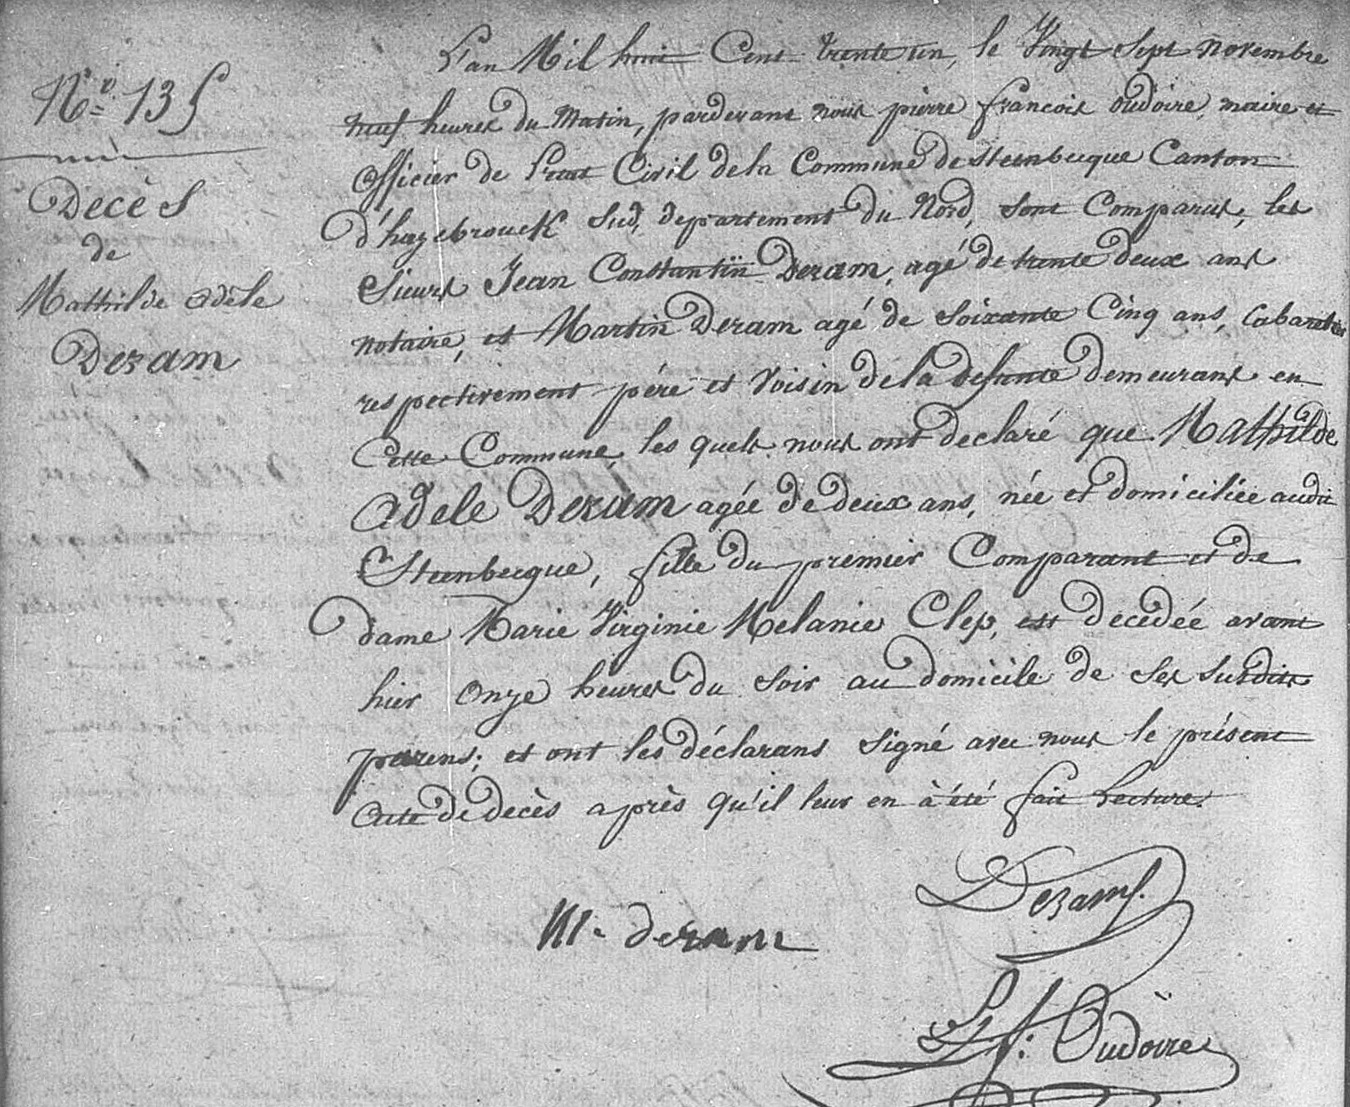 N.º 135
Décès
de
Mathilde Adèle
Deram
L'an Mil huit Cent trente un, le Vingt Sept novembre
neuf heures du Matin, pardevant nous pierre françois oudoire, maire et
officier de l'etat Civil de la Commune de steenbecque Canton
d'hazebrouck Sud, departement du Nord, sont Comparus, les
Sieurs Jean Constantin Deram, agé de trente deux ans
notaire, et Martin Deram agé de soixante Cinq ans, Cabaretier
respectivement pére et Voisin de la defunte demeurans en
Cette Commune les quels nous ont declaré que Mathilde
Adele Deram agée de deux ans, née et domiciliée audit
Steenbecque, fille du premier Comparant et de
dame Marie Virginie Melanie Clep, est decedée avant
hier onze heures du soir au domicile de ses susdits
parens; et ont les déclarans signé avec nous le présent
acte de decès après qu'il leur en à été fait Lecture.
Derams.
M. deram
P. f. Oudoire